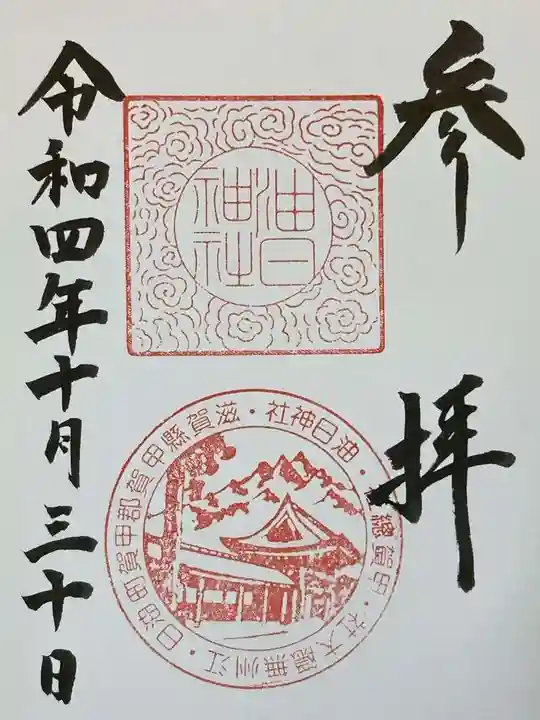 参拝
油日
神社
油日神社・滋賀縣甲賀郡甲賀町油日・江州無隠大社・甲賀總
令和四年十月三十日